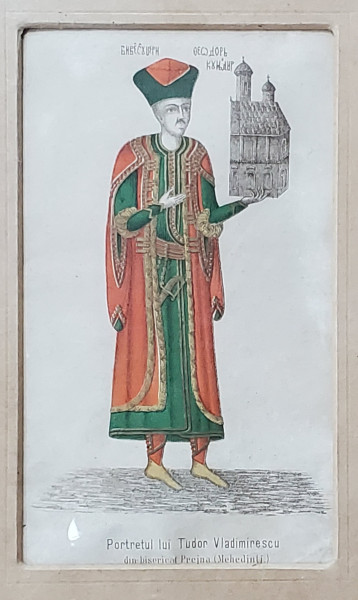 ѲЕѠДОРЬ
Portretul lui Tudor Vladimirescu
din biserica Prejna (Mehedinți)